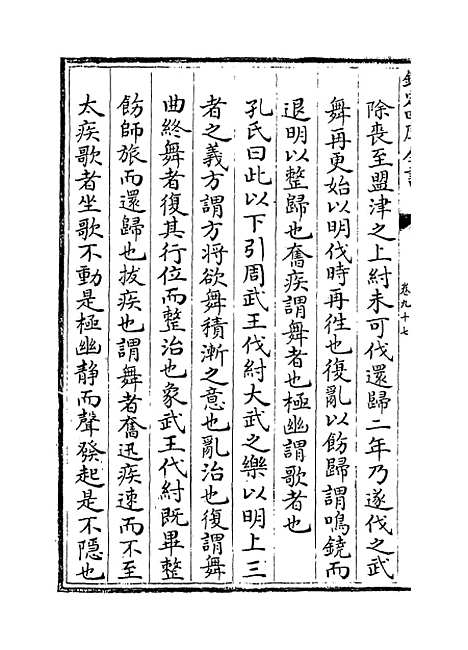 欽定四庫全書
卷九十七
除喪至盟津之上紂未可伐還歸二年乃遂伐之武
舞再更始以明伐時再徃也復亂以飭歸謂鳴鐃而
退明以整歸也奮疾謂舞者也極幽謂歌者也
孔氏曰此以下引周武王伐紂大武之樂以明上三
者之義方謂方將欲舞積漸之意也亂治也復謂舞
曲終舞者復其行位而整治也象武王伐紂既畢整
飭師旅而還歸也拔疾也謂舞者奮迅疾速而不至
太疾歌者坐歌不動是極幽静而聲發起是不隱也